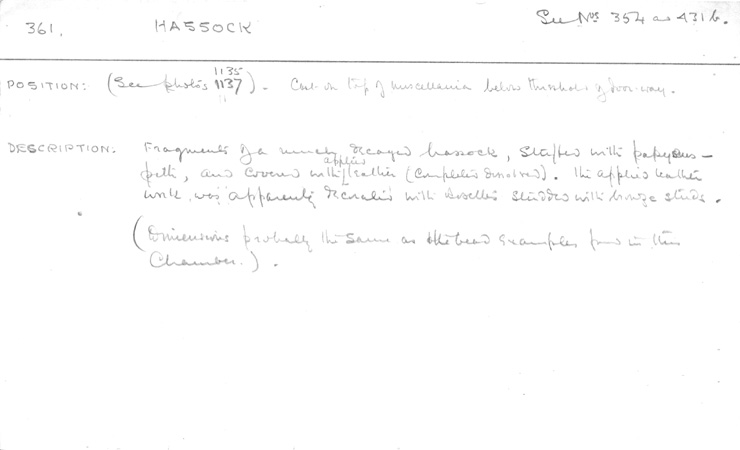 361. HASSOCK See Nos 354 and 431 b.
POSITION: (See photo's 1135 1137). Cast on top of miscellania below threshold of door-way.
DESCRIPTION: Fragments of a much decayed hassock, stuffed with papyrus-
pith, and covered with applied leather (completely dissolved). The applied leather
work was apparently decorated with rosettes studded with bronze studs.
(Dimensions probably the same as the bead examples found in this
Chamber.).